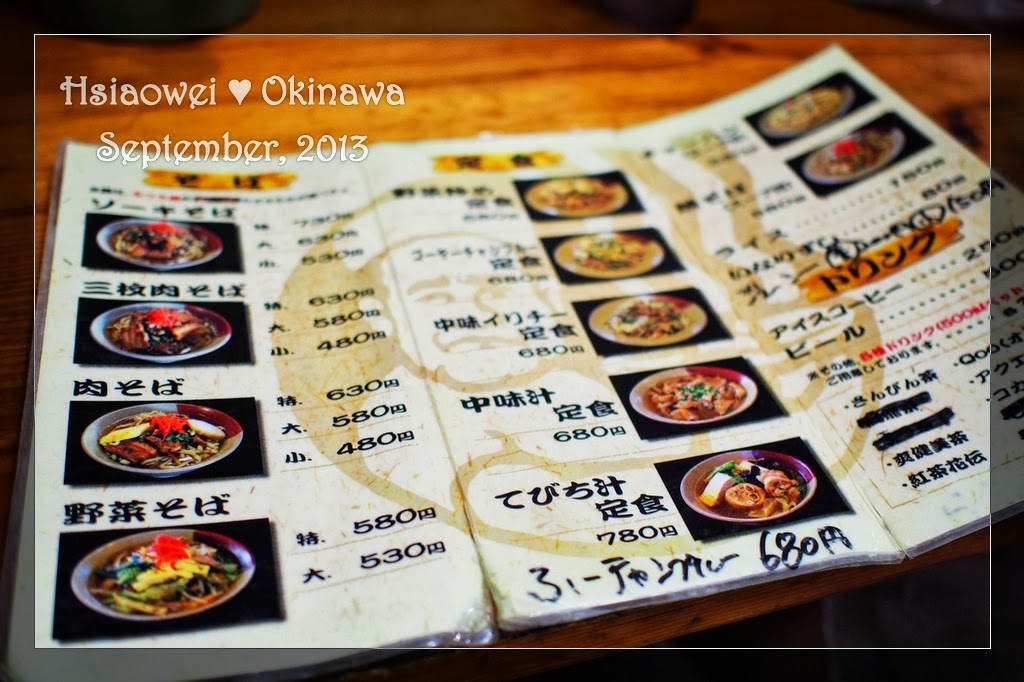 Hsiaowei ♥ Okinawa
September, 2013
そば
ソーキそば
特. 730円
大. 630円
小. 530円
三枚肉そば
特. 630円
大. 580円
小. 480円
肉そば
特. 630円
大. 580円
小. 480円
野菜そば
特. 580円
大. 530円
定食
野菜炒め
定食
680円
ゴーヤーチャンプルー
定食
680円
中味イリチー
定食
680円
中味汁
定食
680円
てびち汁
定食
780円
ふーチャンプルー 680円
ライス
ドリンク
アイスコーヒー
ビール
※その他 各種ドリンク(500mlペット
ご用意しております。
・さんぴん茶
・爽健美茶
・紅茶花伝
・Qoo(オ
・アクエ